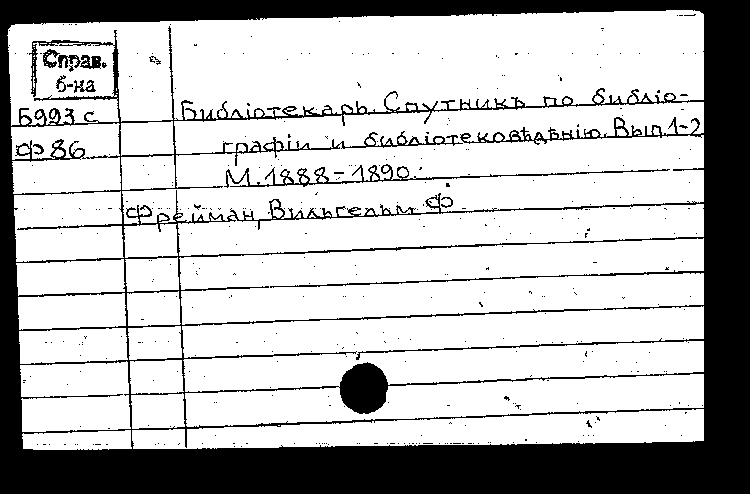 Справ.
б-на
Б993 с
Библіотекарь. Спутникъ по библіо-
Ф 86
графіи и библіотековѣдѣнію. Вып. 1-2
М. 1888-1890.
Фрейман, Вильгельм Ф